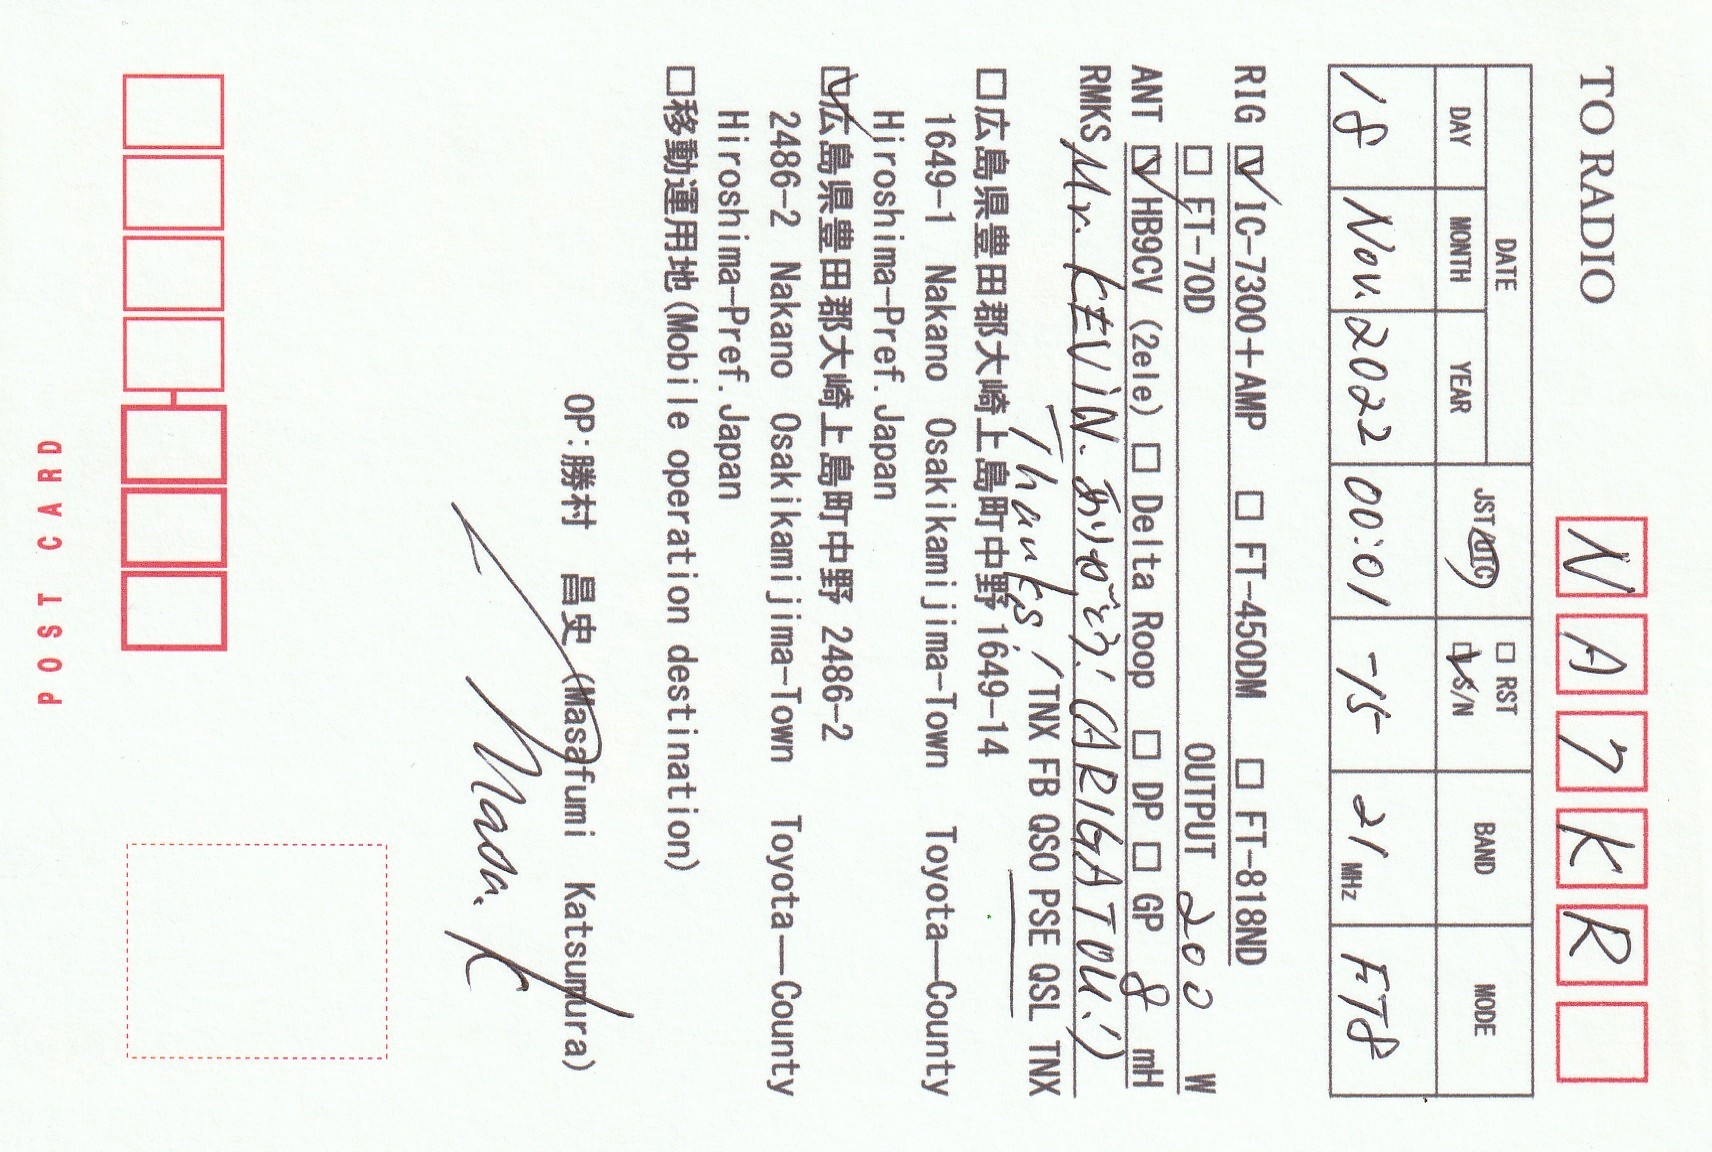 TO RADIO NA7KR
DATE JST/UTC □ RST BAND MODE
DAY MONTH YEAR ☑ S/N
18 Nov. 2022 00:01 -15 21 MHz FT8
RIG ☑ IC-7300+AMP □ FT-450DM □ FT-818ND
□ FT-70D OUTPUT 200 W
ANT ☑ HB9CV (2ele) □ Delta Roop □ DP □ GP 8 mH
RMKS Mr. KEVIN. ありがとう! (ARIGATOU!)
Thanks! / TNX FB QSO PSE QSL TNX
□広島県豊田郡大崎上島町中野1649-14
1649-1 Nakano Osakikamijima-Town Toyota—County
Hiroshima-Pref. Japan
☑広島県豊田郡大崎上島町中野 2486-2
2486-2 Nakano Osakikamijima-Town Toyota—County
Hiroshima-Pref. Japan
□移動運用地(Mobile operation destination)
OP:勝村 昌史 (Masafumi Katsumura)
Masa. K
POST CARD